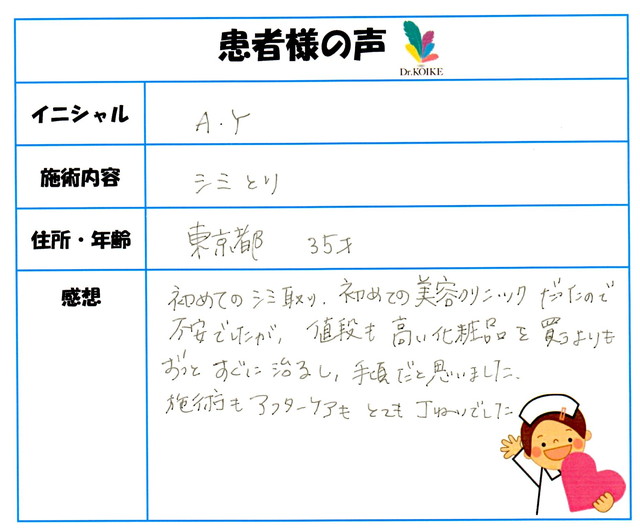 患者様の声
Dr.KOIKE
イニシャル
A.Y
施術内容
シミとり
住所・年齢
東京都 35才
感想
初めてのシミ取り、初めての美容クリニックだったので
不安でしたが、値段も高い化粧品を買うよりも
ずっとすぐに治るし、手頃だと思いました。
施術もアフターケアもとても丁ねいでした